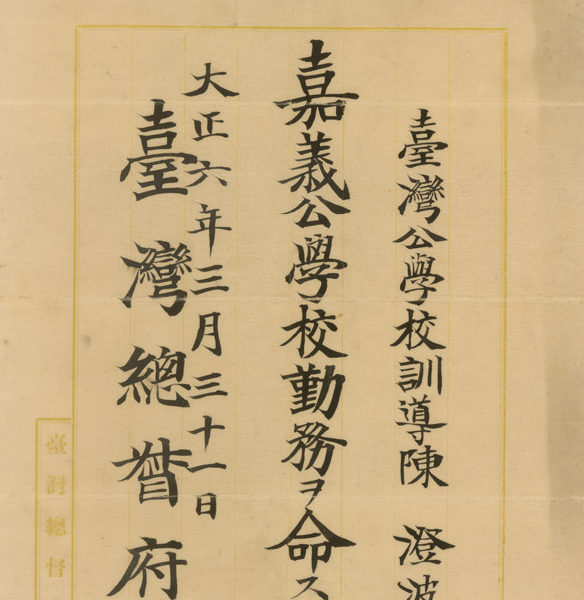 臺灣公學校訓導陳 澄波
嘉義公學校勤務ヲ命ス
大正六年三月三十一日
臺灣總督府
臺灣總督